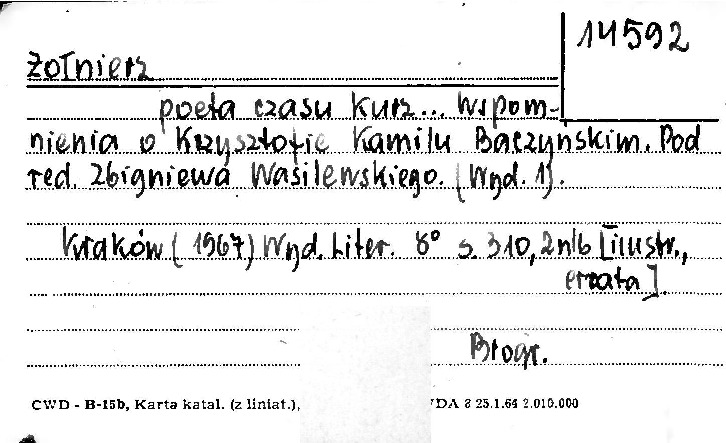 14592
Żołnierz
poeta czasu kurz... Wspom-
nienia o Krzysztofie Kamilu Baczyńskim. Pod
red. Zbigniewa Wasilewskiego. (Wyd. 1).
Kraków (1967) Wyd. Liter. 8° s. 310, 2 nlb [ilustr.,
errata].
Biogr.
CWD - B-15b, Karta katal. (z liniat.), DA 8 25.1.64 2.010.000